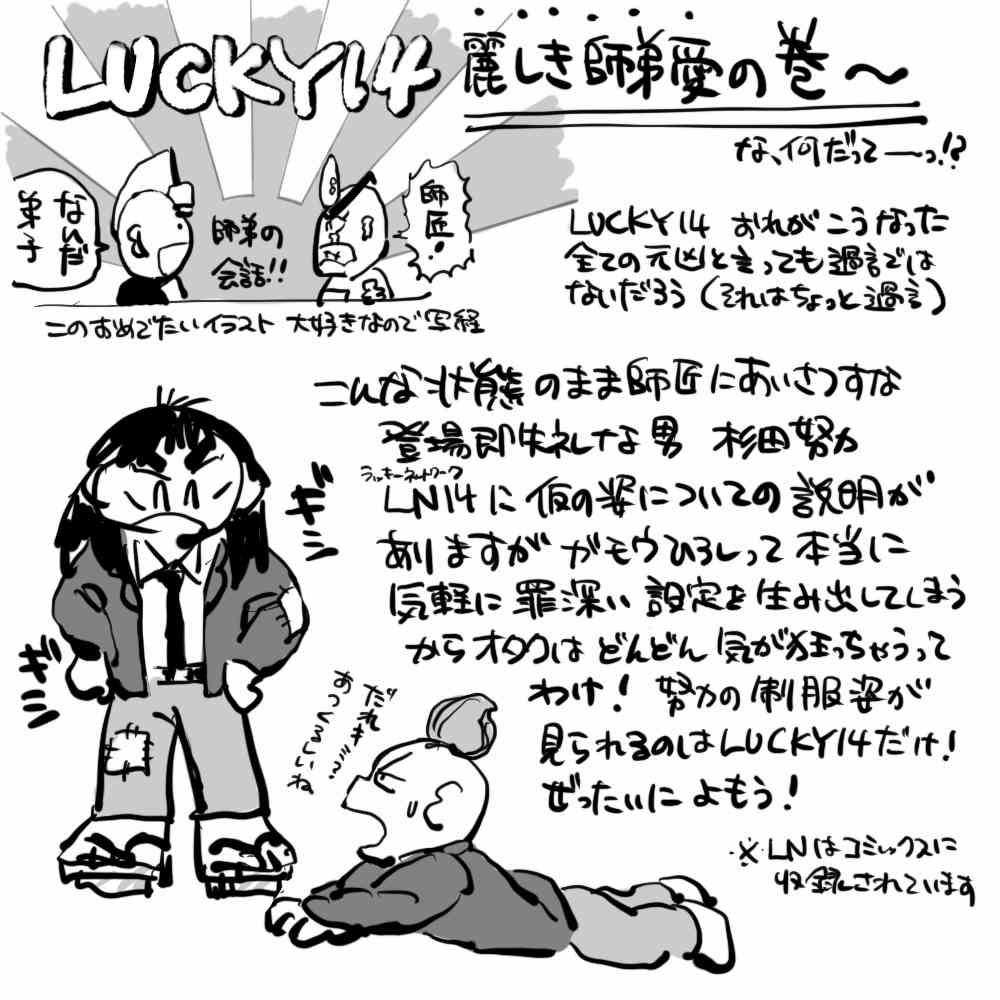 LUCKY14 麗しき師弟愛の巻〜
な、何だってーっ!?
師匠!
なんだ
弟子
師弟の
会話!!
このおめでたいイラスト 大好きなので写経
LUCKY14 おれがこうなった
全ての元凶と言っても過言では
ないだろう(それはちょっと過言)
こんな状態のまま師匠にあいさつすな
登場即失礼な男 杉田努力
ラッキーネットワーク
LN14に仮の姿についての説明が
ありますが ガモウひろしって本当に
気軽に罪深い設定を生み出してしまう
からオタクはどんどん気が狂っちゃうって
わけ! 努力の制服姿が
見られるのはLUCKY14だけ!
ぜったいによもう!
※LNはコミックスに
収録されています
ギシ
ギシ
あつくるしいね